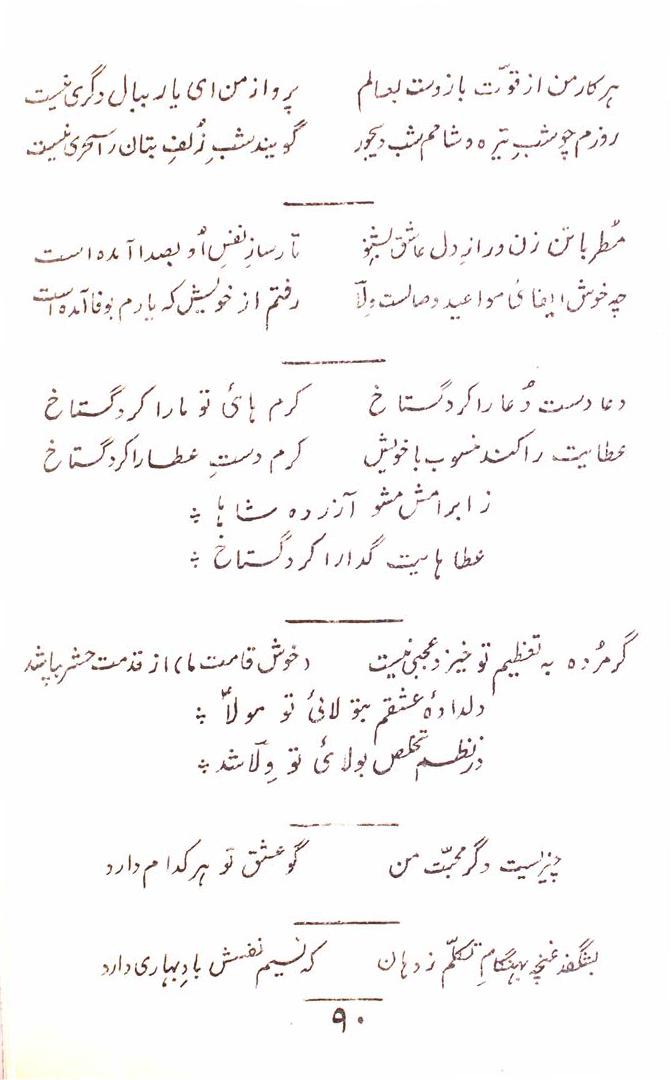 ہر کار من از قوّت بازوست بعالم پرواز من ای یار ببال دگری نیست
روزم چو شبِ تیرہ و شامم شب دیجور گویند شبِ زُلفِ بتان را سحری نیست
مُطربا تن زن و رازِ دل عاشق بشنو تا رسازِ نفسِ اُو بصدا آمدہ است
چہ خوش ایفائ مواعید وصالست وِلّا رفتم از خویش کہ یارم بوفا آمدہ است
دعا دست دُعا را کرد گستاخ کرم ہائ تو ما را کرد گستاخ
عطایت را کند منسوب با خویش کرم دستِ عطا را کرد گستاخ
ز ابرامش مشو آزردہ شاہا ؞
عطاہایت گدا را کرد گستاخ ؞
گر مُردہ بہ تعظیم تو خیزد عجبی نیست (خوش قامت ما) از قدمت حشر بپا شد
دلدادۂ عشقم بتولائ تو مولاؔ ؞
در نظم تخلص بولائ تو وِلّا شد ؞
چیزیست دگر محبّت من گو عشق تو ہر کدام دارد
بشگفد غنچہ بہنگامِ تکلّم ز دہان کہ نسیم نفسش بادِ بہاری دارد
۹۰